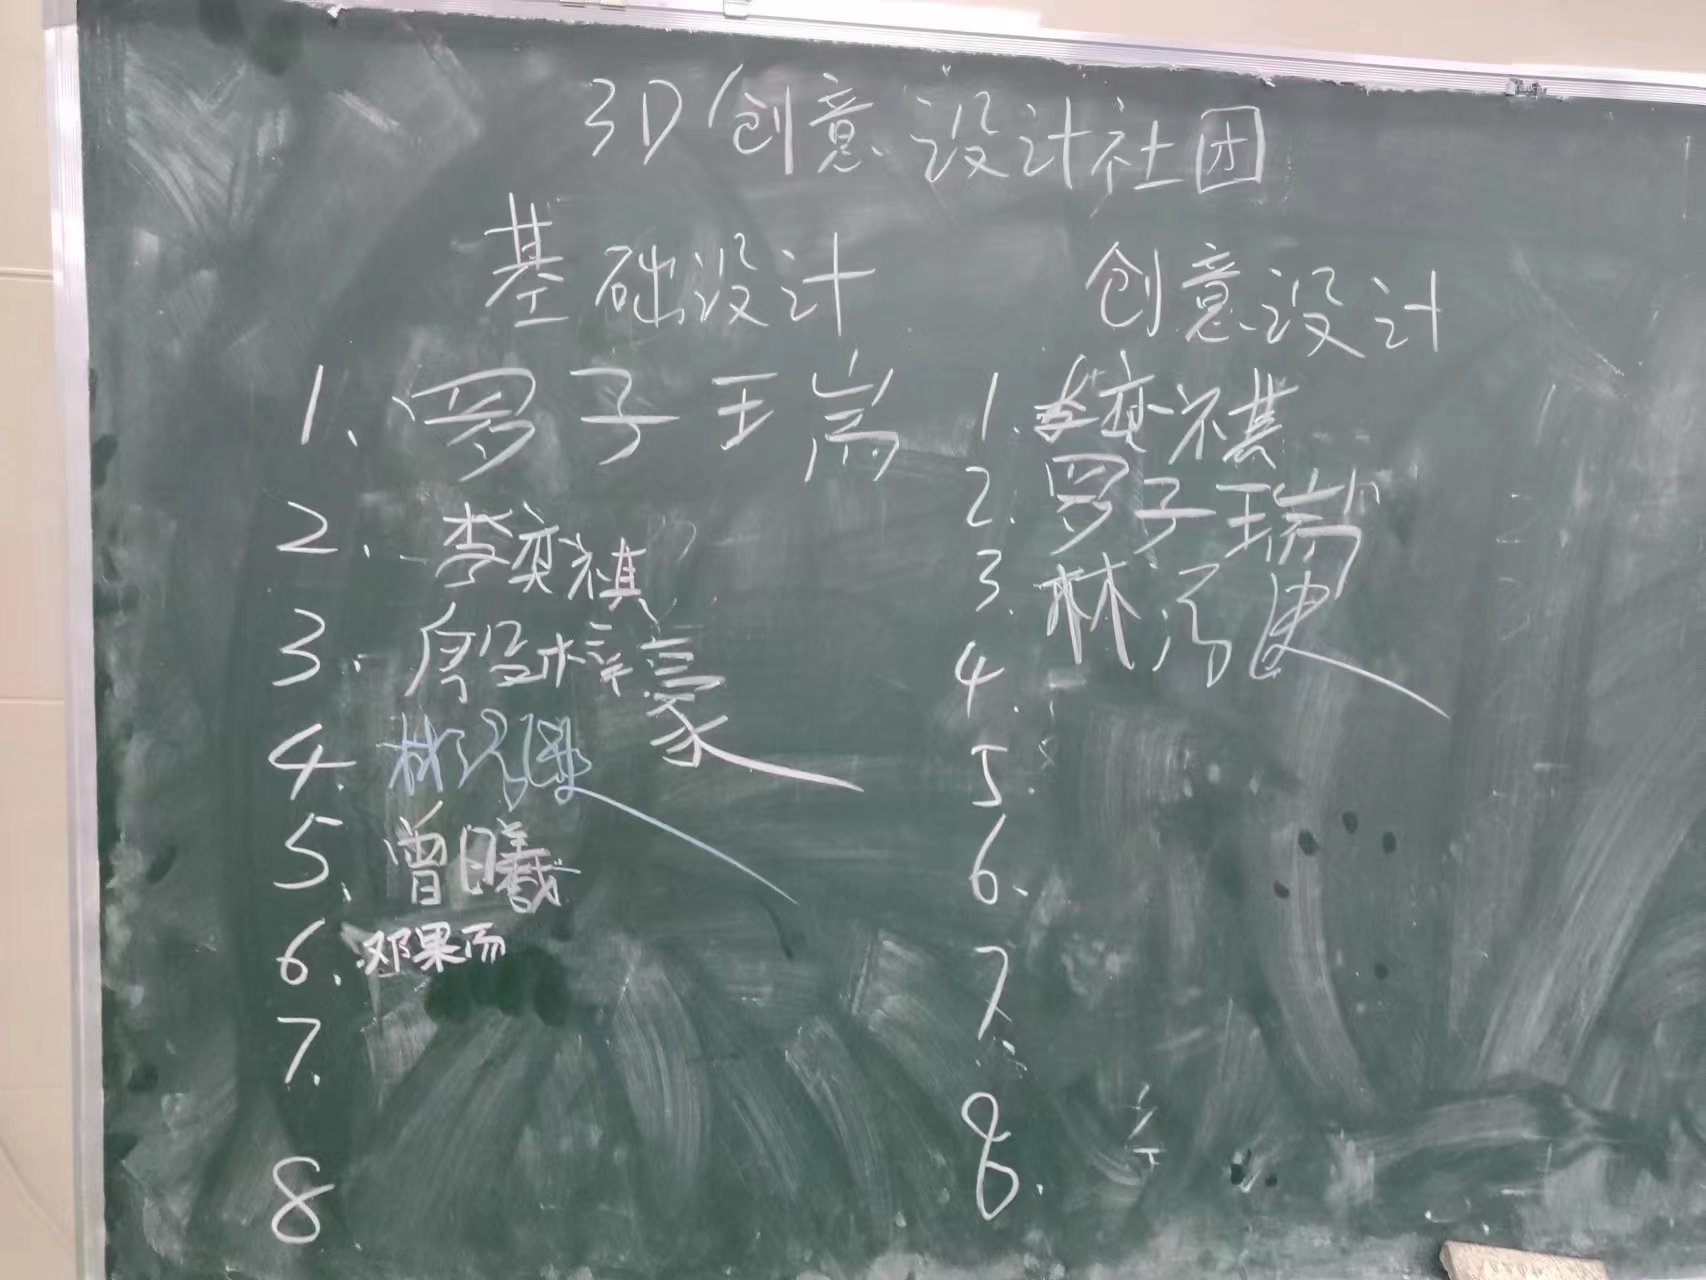 3D创意设计社团
基础设计
1. 罗子瑞
2. 李奕祺
3.
4. 林
5. 曾曦
6. 邓果而
7.
8
创意设计
1. 李奕祺
2. 罗子瑞
3. 林
4.
5.
6.
7.
8.